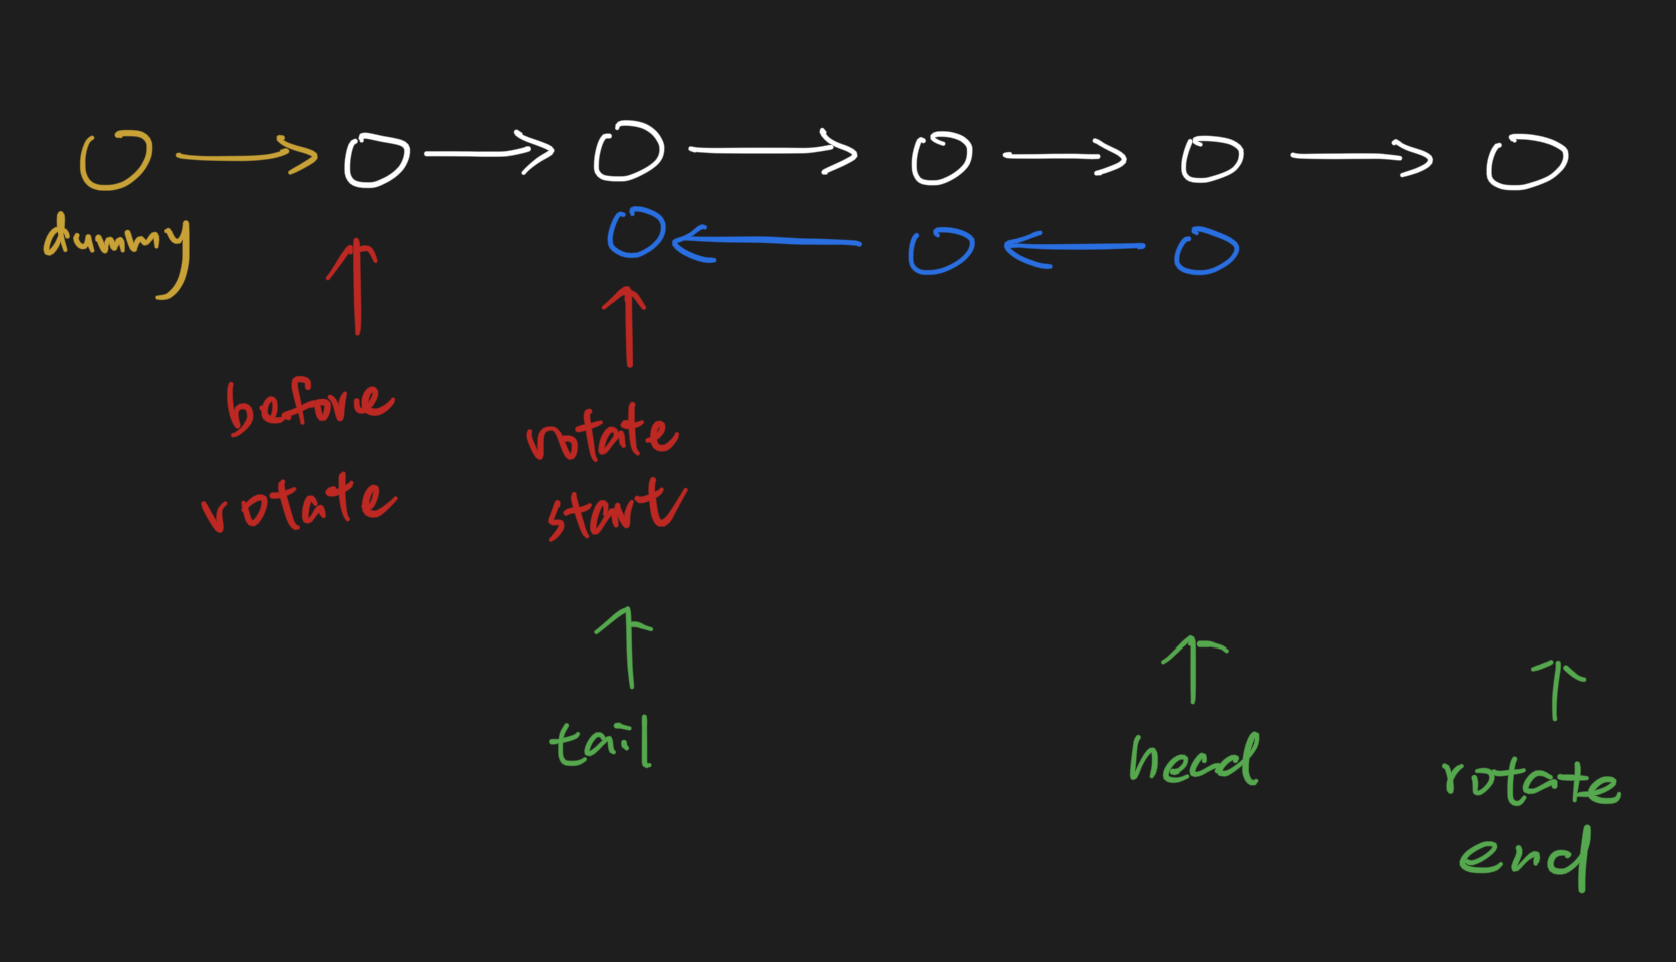 dummy
before
rotate
rotate
start
tail
head
rotate
end